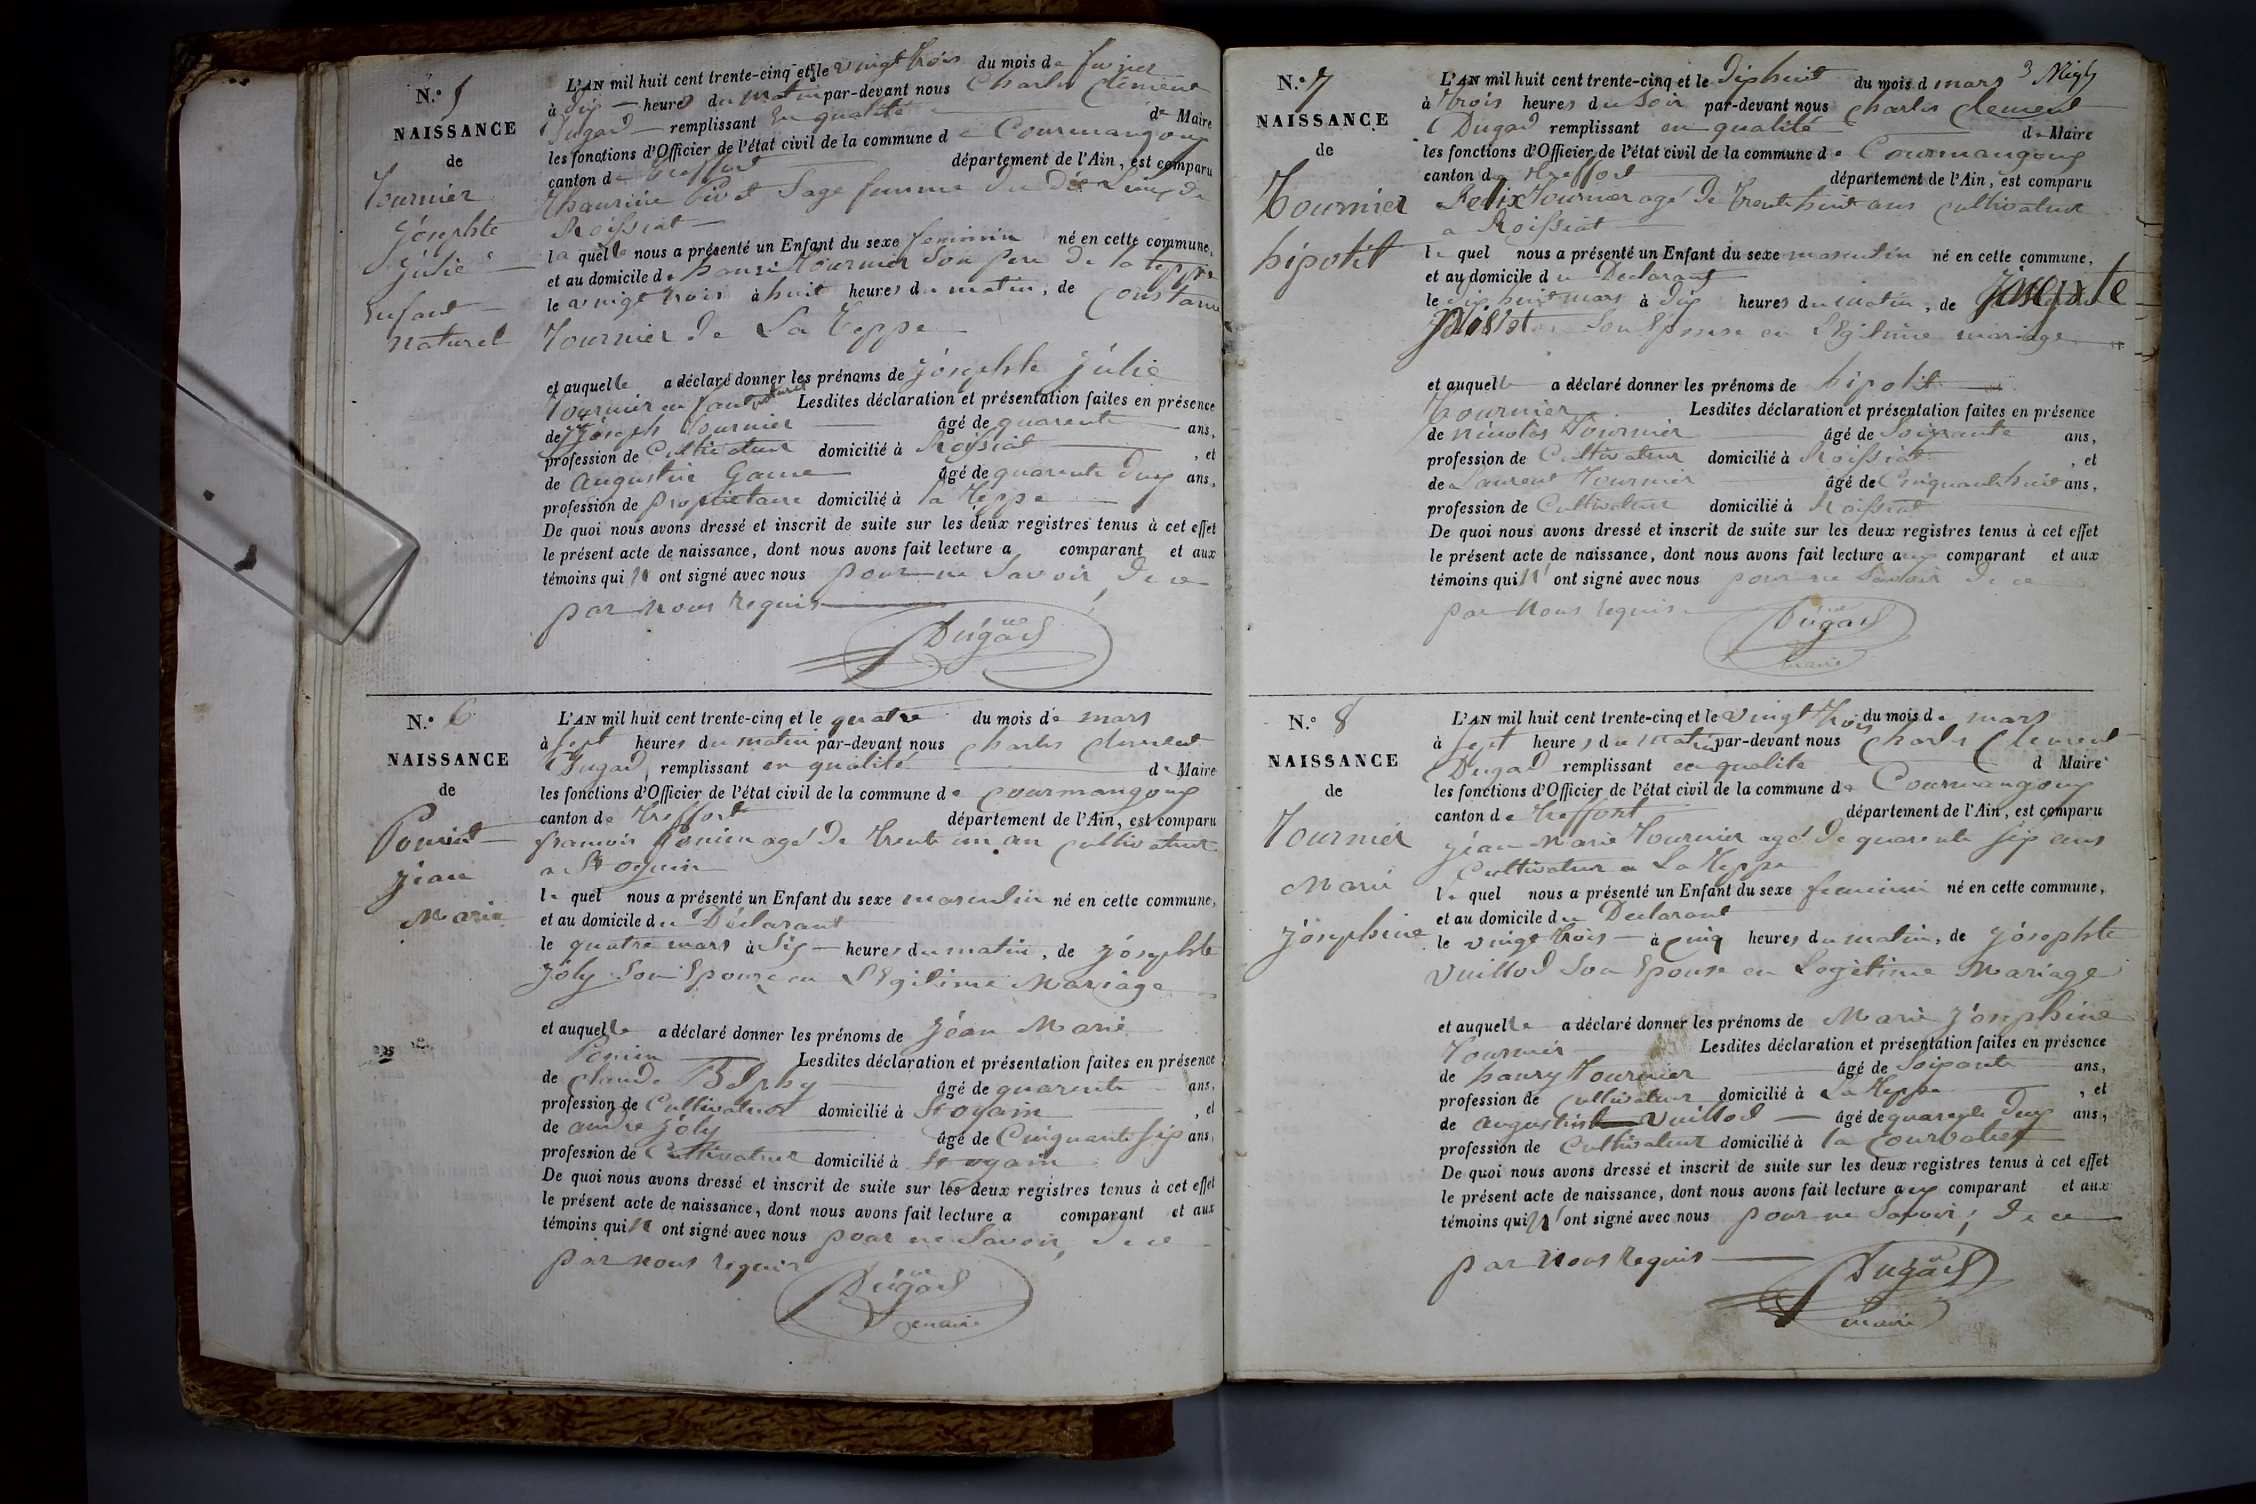 N.o 5
NAISSANCE
de
Tournier
Joséphte
Julie
Enfant
naturel
L'AN mil huit cent trente-cinq et le vingt trois du mois de fevrier
à dix heures du matin par-devant nous Charles Clément
Dugad remplissant en qualité de Maire
les fonctions d'Officier de l'état civil de la commune de Courmangoux
canton de Treffort département de l'Ain, est comparu
Pivet Sage femme du dit Lieu de
Roissiat
laquelle nous a présenté un Enfant du sexe feminin né en cette commune,
et au domicile de hanri Tournier Son pere de la teppe
le vingt trois à huit heures du matin, de Constance
Tournier de La Teppe
et auquelle a déclaré donner les prénoms de Joséphte Julie
Tournier enfant naturel Lesdites déclaration et présentation faites en présence
de Joseph Tournier âgé de quarente ans,
profession de Cultivateur domicilié à Roissiat, et
de Augustin Game âgé de quarente deux ans,
profession de propriétaire domicilié à la Teppe
De quoi nous avons dressé et inscrit de suite sur les deux registres tenus à cet effet
le présent acte de naissance, dont nous avons fait lecture a comparant et aux
témoins qui n' ont signé avec nous pour ne Savoir, de ce
par nous requis
Dugad
N.o 6
NAISSANCE
de
Ponin
jean
Marie
L'AN mil huit cent trente-cinq et le quatre du mois de mars
à Sept heures du matin par-devant nous Charles Clement
Dugad, remplissant en qualité de Maire
les fonctions d'Officier de l'état civil de la commune de Courmangoux
canton de Treffort département de l'Ain, est comparu
francois Ponin agé de trente un an cultivateur
a St oyain
le quel nous a présenté un Enfant du sexe masculin né en cette commune,
et au domicile du Déclarant
le quatre mars à Six heures du matin, de joséphte
joly Son Epouze en Légitime Mariage
et auquelle a déclaré donner les prénoms de Jéan Marie
Ponin Lesdites déclaration et présentation faites en présence
de Claude âgé de quarente ans,
profession de Cultivateur domicilié à St oyain, et
de andré joly âgé de Cinquante six ans,
profession de Cultivateur domicilié à St oyain
De quoi nous avons dressé et inscrit de suite sur les deux registres tenus à cet effet
le présent acte de naissance, dont nous avons fait lecture a comparant et aux
témoins qui n' ont signé avec nous pour ne Savoir, de ce
par nous requis
Dugad
maire
N.o 7
NAISSANCE
de
Tournier
hipolit
L'AN mil huit cent trente-cinq et le dix huit du mois d mars
à trois heures du Soir par-devant nous Charles Clement
Dugad remplissant en qualité de Maire
les fonctions d'Officier de l'état civil de la commune de Courmangoux
canton de Treffort département de l'Ain, est comparu
Felix Tournier agé de trente huit ans cultivateur
a Roissiat
le quel nous a présenté un Enfant du sexe masculin né en cette commune,
et au domicile du Déclarant
le dix huit mars à dix heures du matin, de Josephte
Son Epouse en Légitime mariage
et auquelle a déclaré donner les prénoms de hipolit
Tournier Lesdites déclaration et présentation faites en présence
de nicolas Tournier âgé de Soixante ans,
profession de Cultivateur domicilié à Roissiat, et
de Laurent Tournier âgé de Cinquante huit ans,
profession de Cultivateur domicilié à Roissiat
De quoi nous avons dressé et inscrit de suite sur les deux registres tenus à cet effet
le présent acte de naissance, dont nous avons fait lecture aux comparant et aux
témoins qui n' ont signé avec nous pour ne Savoir de ce
par nous requis
Dugad
maire
N.o 8
NAISSANCE
de
Tournier
Marie
Joséphine
L'AN mil huit cent trente-cinq et le vingt trois du mois de mars
à Sept heures du matin par-devant nous Charles Clement
Dugad remplissant en qualité d Maire
les fonctions d'Officier de l'état civil de la commune de Courmangoux
canton de Treffort département de l'Ain, est comparu
jéan Marie Tournier agé de quarente six ans
Cultivateur a La Teppe
le quel nous a présenté un Enfant du sexe feminin né en cette commune,
et au domicile du Declarant
le vingt trois à cinq heures du matin, de joséphte
vuillod Son Epouse en Legitime Mariage
et auquelle a déclaré donner les prénoms de Marie Joséphine
Tournier Lesdites déclaration et présentation faites en présence
de hanry Tournier âgé de Soixante ans,
profession de Cultivateur domicilié à La Teppe, et
de augustin vuillod âgé de quarente deux ans,
profession de Cultivateur domicilié à la
De quoi nous avons dressé et inscrit de suite sur les deux registres tenus à cet effet
le présent acte de naissance, dont nous avons fait lecture aux comparant et aux
témoins qui n' ont signé avec nous pour ne Savoir, de ce
par nous requis
Dugad
maire